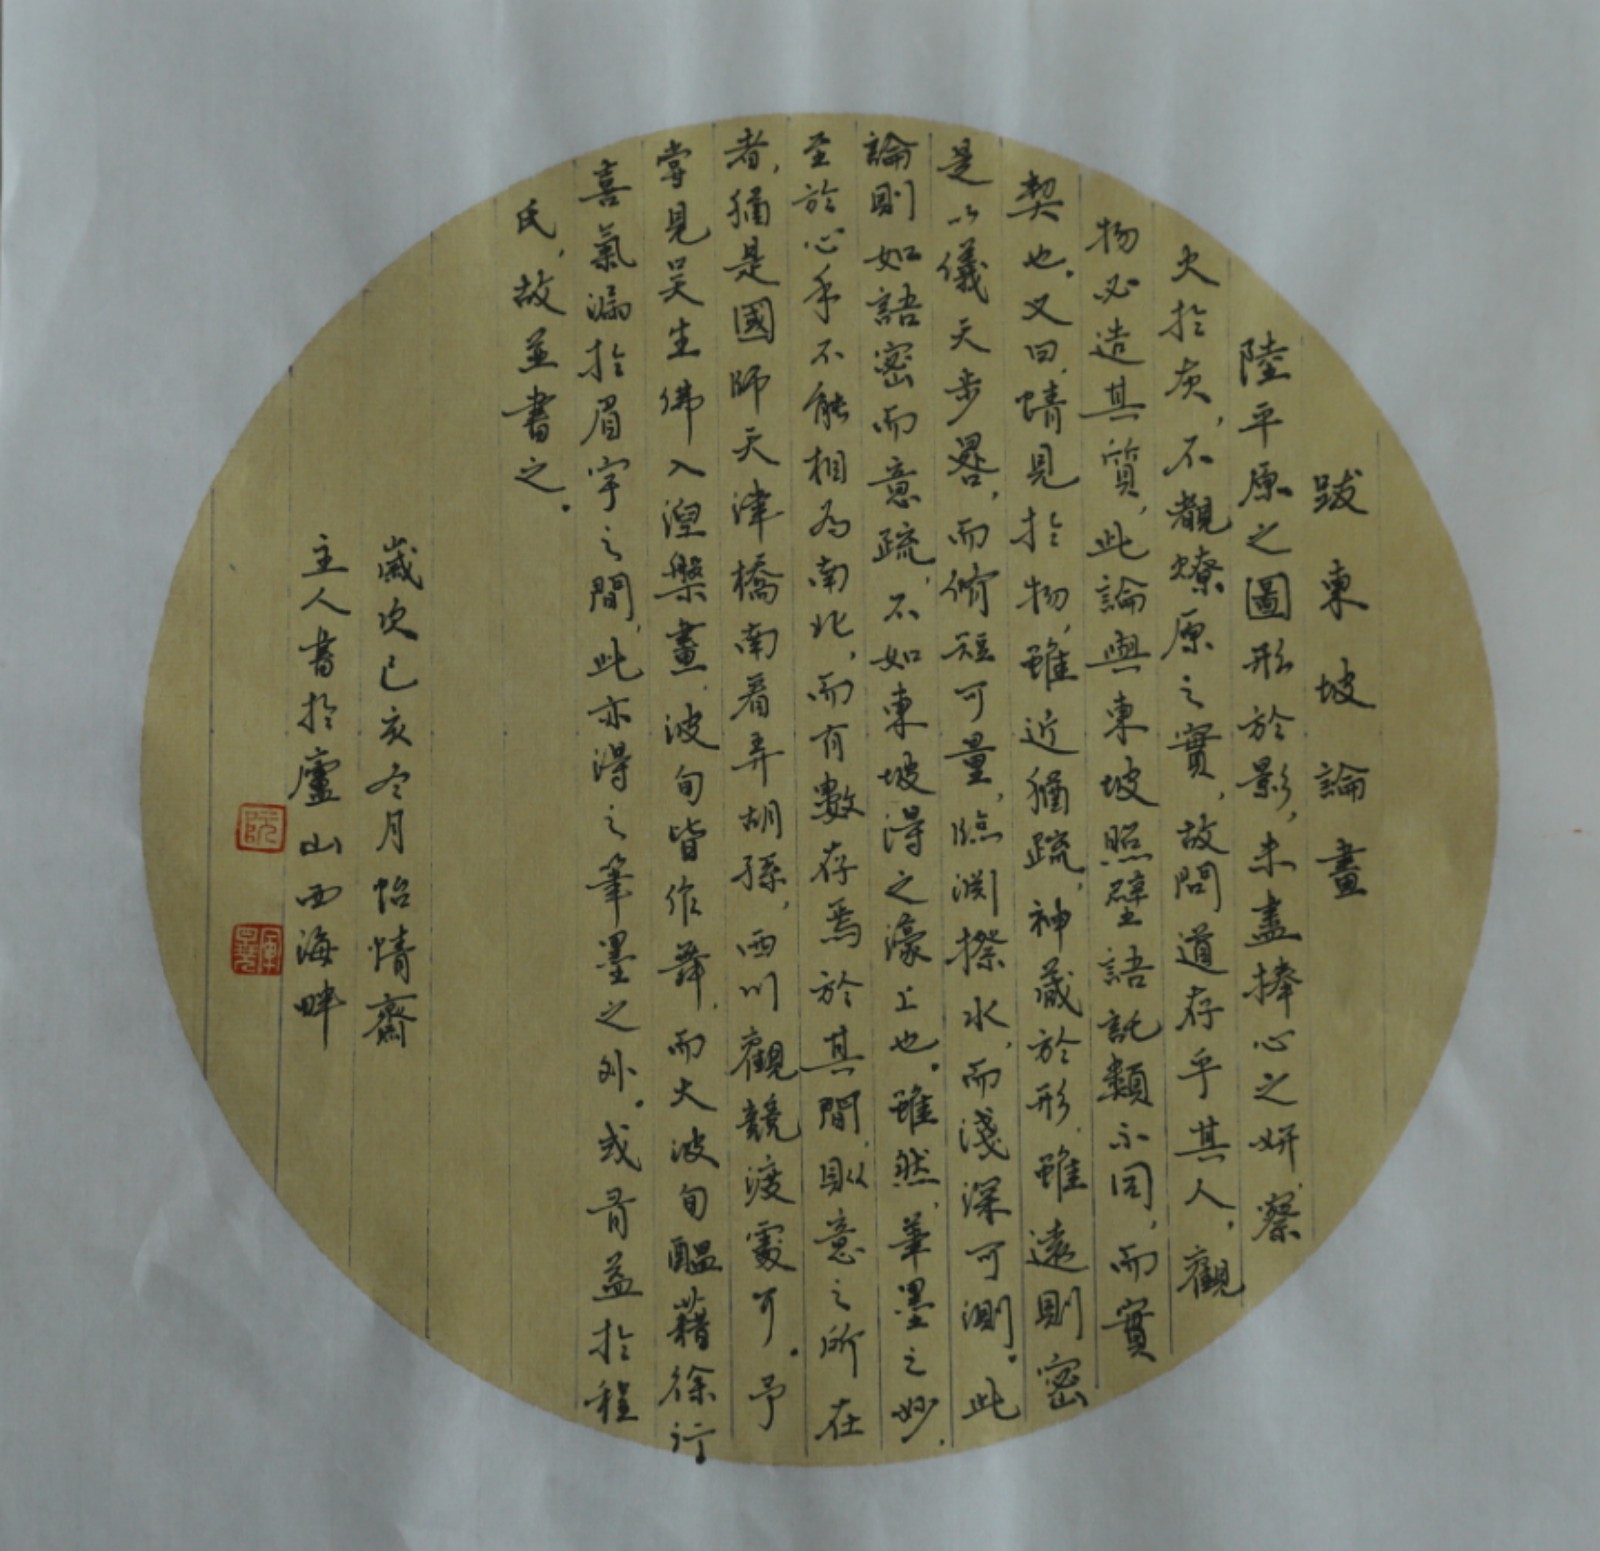 跋東坡論畫
陸平原之圖形於影，未盡捧心之妍，察
火於灰，不覩燎原之實，故問道存乎其人，觀
物必造其質，此論與東坡照壁語託類不同，而實
契也。又曰，情見於物，雖近猶疏，神藏於形，雖遠則密
是以儀天步晷，而脩短可量，臨淵揆水，而淺深可測。此
論則如語密而意疏，不如東坡得之濠上也。雖然，筆墨之妙，
至於心手不能相為南北，而有數存焉於其間，則意之所在
者，猶是國師天津橋南看弄胡孫，西川觀競渡處可。予
嘗見吳生佛入涅槃畫，波旬皆作舞，而大波旬醞藉徐行
喜氣漏於眉宇之間，此亦得之筆墨之外。或有益於程
氏，故並書之。
歲次已亥冬月怡情齋
主人書於廬山西海畔
阮